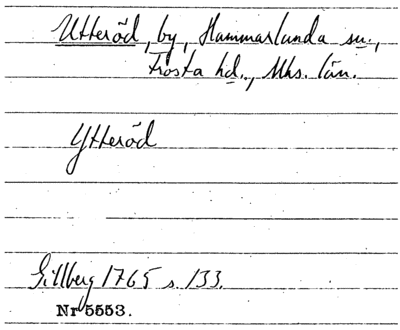 Utteröd, by, Hammarlunda sn.,
Frosta hd., Mhs. län.
Ytteröd
Gillberg 1765 s. 133.
Nr 5553.